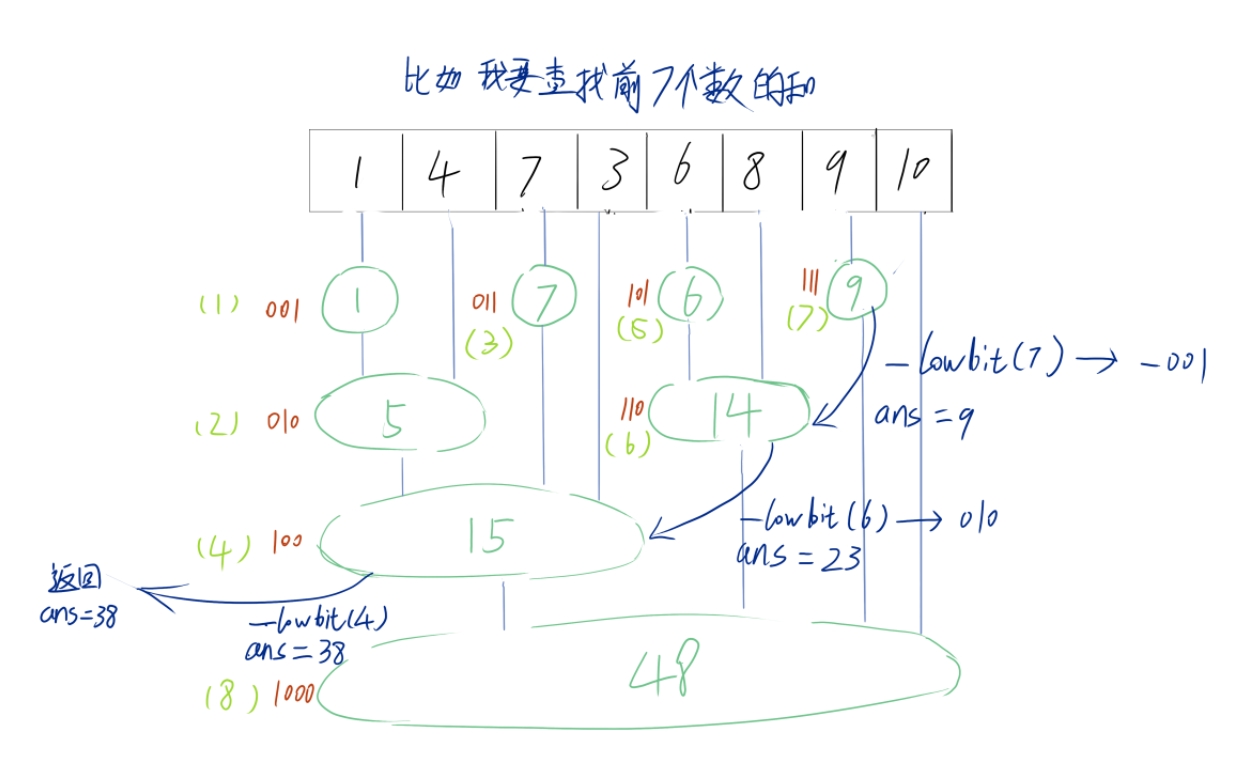 比如 我要查找前7个数的和
1 4 7 3 6 8 9 10
(1) 001 1
011 7
(3)
101 6
(5)
111 9
(7)
-lowbit(7) → -001
ans = 9
(2) 010 5
110 14
(6)
-lowbit(6) → 010
ans = 23
(4) 100 15
-lowbit(4)
ans = 38
返回
ans=38
(8) 1000 48